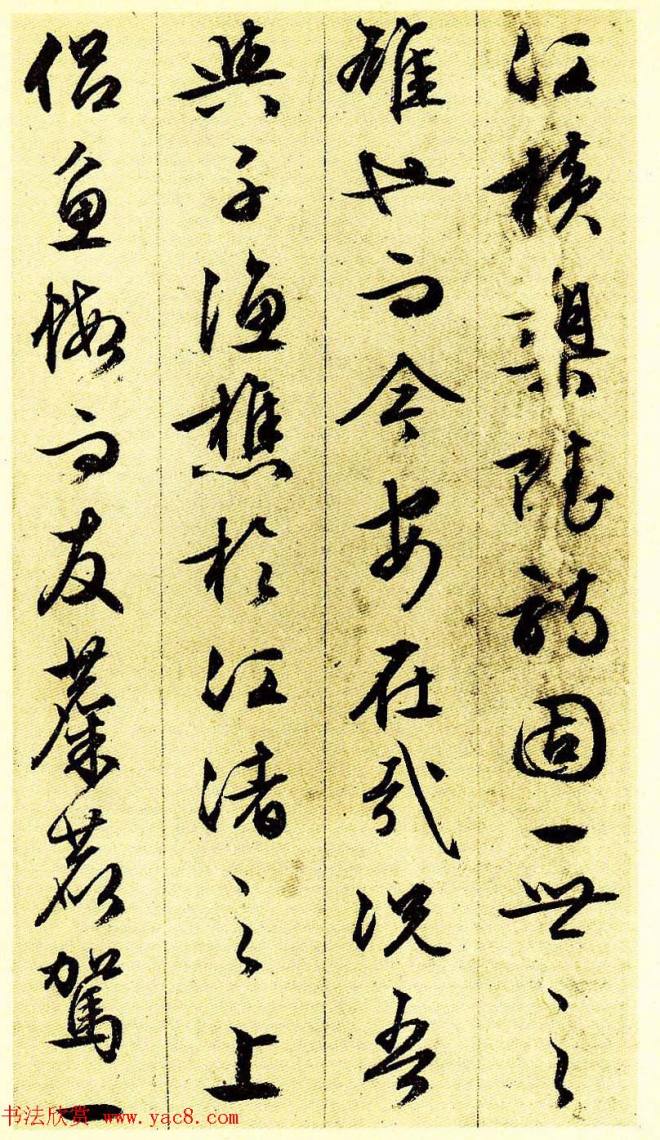 江横槊賦詩固一世之
雄也而今安在哉況吾
與子漁樵於江渚之上
侶魚蝦而友麋鹿駕一
书法欣赏 www.yac8.com